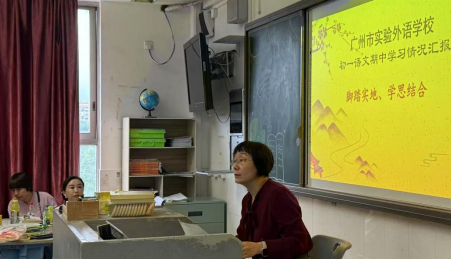 广州市实验外语学校
初一语文期中学习情况汇报
脚踏实地、学思结合